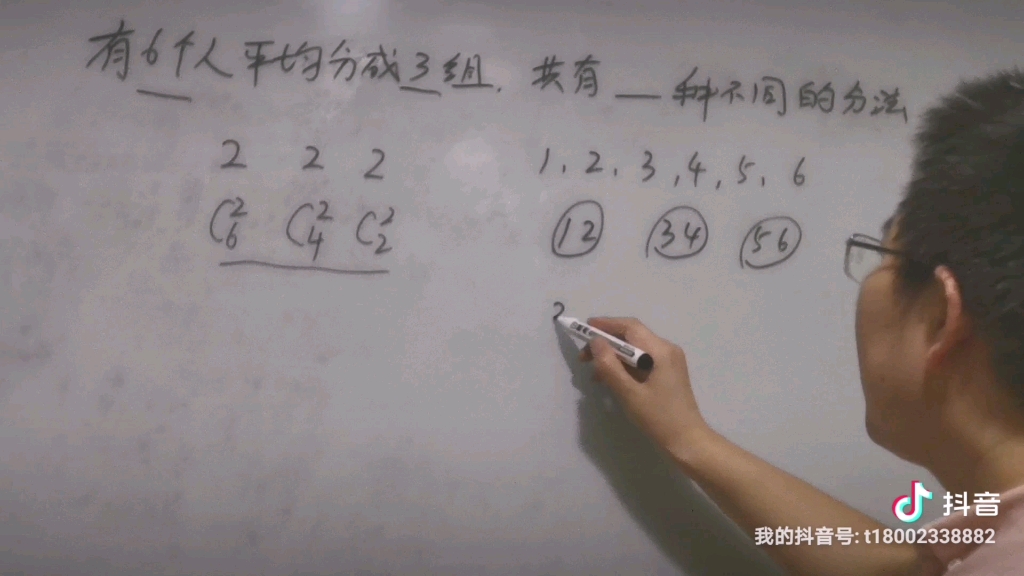 有6个人平均分成3组,共有__种不同的分法
2 2 2
C₆² C₄² C₂²
1,2,3,4,5,6
12 34 56
抖音
我的抖音号: t18002338882